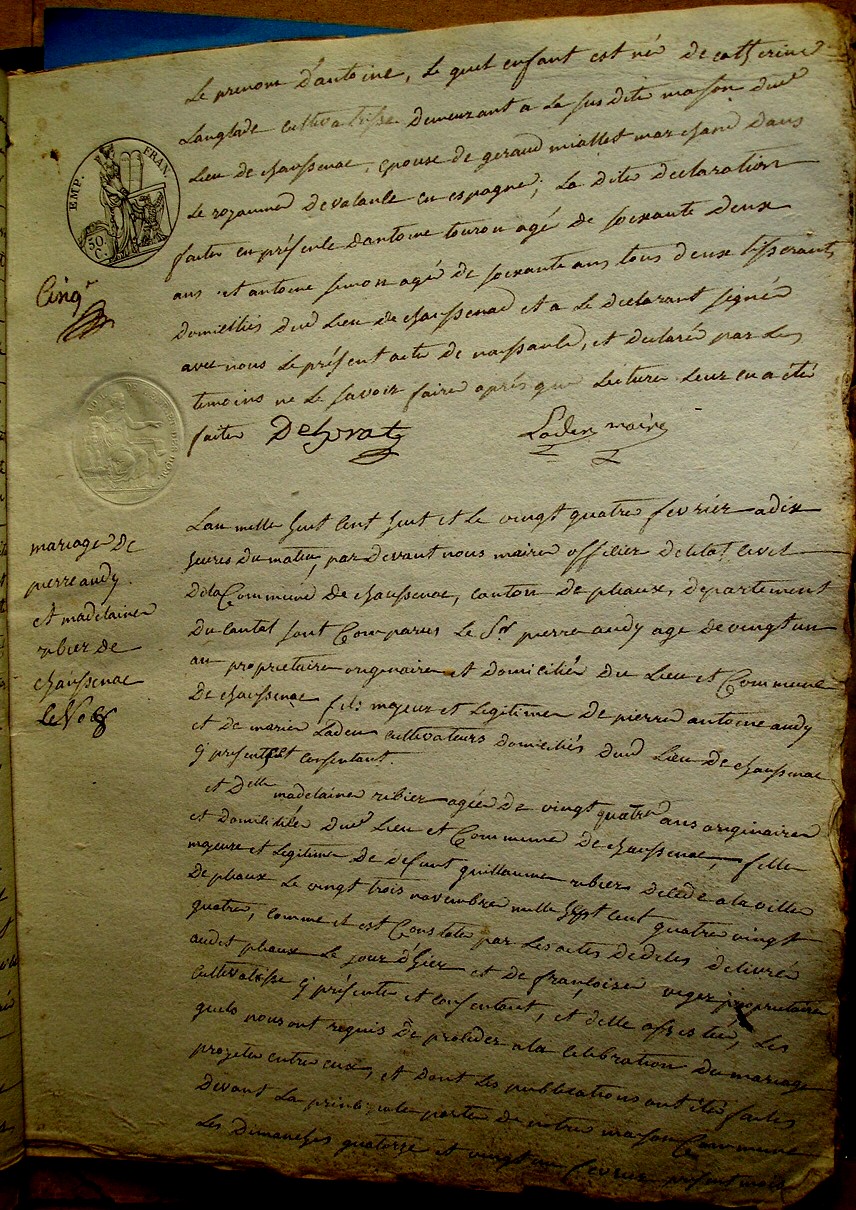 EMP. FRAN.
50. C.
Cinq
Le prenom d'antoine, le quel enfant est née de catherine
Langlade cultivatrisse demeurant a la susdite maison dud
Lieu de chaussenac, epouse de geraud mialhet marchand dans
le royaume devalance en espagne; la dite declaration
faite en présence dantoine touron agé de soixante deux
ans et antoine simon agé de soixante ans tous deux tisserants
domicilliés dud Lieu de chaussenac et a le declarant signée
avec nous le présent acte de naissance, et declaré par les
temoins ne le savoir faire aprés que lecture leur en a eté
faite Delzrat Laden maire
mariage de
pierre audy
et madelaine
ribier de
chaussenac
Lan mille huit cent huit et le vingt quatre fevrier a dix
heures du matin, par devant nous maire officier deletat civil
dela Commune de chaussenac, canton de pleaux, departement
du cantal sont Comparus le Sr pierre audy age de vingt un
an proprietaire originaire et domicilié du Lieu et Commune
de chaussenac fils majeur et legitime de pierre antoine audy
et de marie Laden cultivateurs domiciliés dud Lieu de chaussenac
cy présents et consentant.
et Delle madelaine ribier agée de vingt quatre ans originaire
et domiciliée dud Lieu et Commune de chaussenac, fille
majeure et legitime de defunt guillaume ribier décédé a la ville
de pleaux le vingt trois novembre mille sept cent quatre vingt
quatre, comme il est Constaté par les actes de décès délivré
audit pleaux le jour d'hier et de françoise veyer proprietaire
cultivatrisse cy présente et consentant, et delle assistée, les
quels nous ont requis de proceder a la celebration du mariage
projeté entre eux, et dont les publications ont été faites
devant la principale porte de notre maison Commune
les dimanches quatorze et vingt un fevrier présent mois